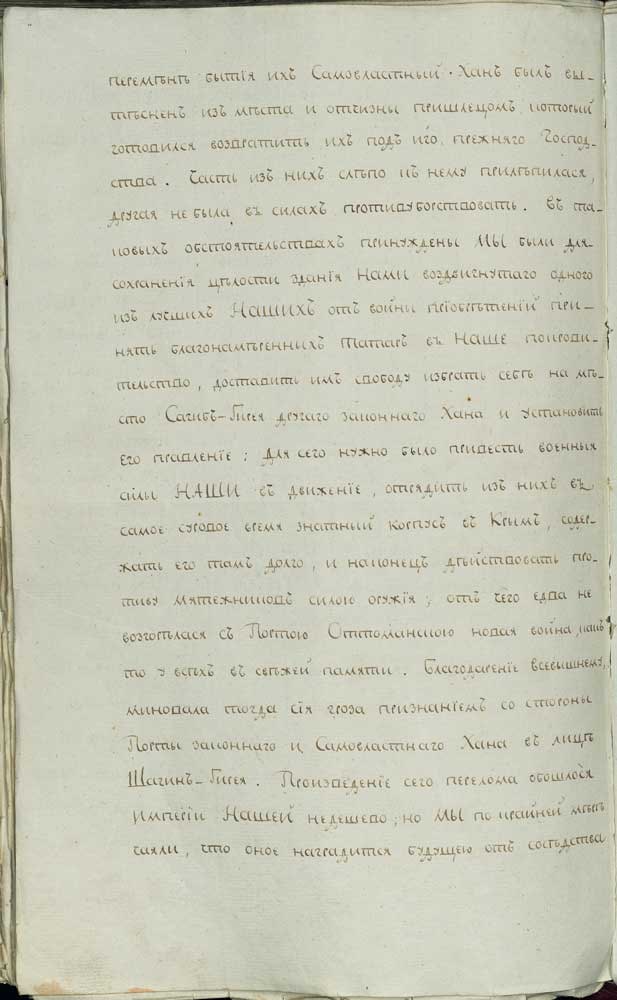 перемѣнѣ бытія ихъ Самовластный Ханъ былъ вы-
тѣсненъ изъ мѣста и отчизны пришлецомъ, который
готовился возвратить ихъ подъ иго прежняго Господ-
ства. Часть изъ нихъ слѣпо къ нему прилѣпилася,
другая не была въ силахъ противуборствовать. Въ та-
ковыхъ обстоятельствахъ принуждены МЫ были для
сохраненія цѣлости зданія Нами воздвигнутаго одного
изъ лучшихъ НАШИХЪ отъ войны пріобрѣтеній при-
нять благонамѣренныхъ Татаръ въ НАШЕ покрови-
тельство, доставить имъ свободу избрать себѣ на мѣ-
сто Сагибъ-Гирея другаго законнаго Хана и установить
Его правленіе; для сего нужно было привесть военныя
силы НАШИ въ движеніе, отрядить изъ нихъ въ
самое суровое время знатный корпусъ въ Крымъ, содер-
жать его тамъ долго, и наконецъ дѣйствовать про-
тиву мятежниковъ силою оружія; отъ чего едва не
возгорѣлася съ Портою Оттоманскою новая война, какъ
то у всѣхъ въ свѣжей памяти. Благодареніе Всевышнему,
миновала тогда сія гроза признаніемъ со стороны
Порты законнаго и Самовластнаго Хана въ лицѣ
Шагинъ-Гирея. Произведеніе сего перелома обошлося
Имперіи Нашей недешево; но МЫ по крайней мѣрѣ
чаяли, что оное наградится будущею отъ сосѣдства